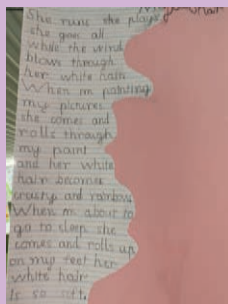 She runs she plays
she goes all
while the wind
blows through
her white hair
When I'm painting
my pictures
she comes and
rolls through
my paint
and her white
hair becomes
crusty and rainbow
When I'm about to
go to sleep she
comes and rolls up
on my feet her
white hair
is so soft.